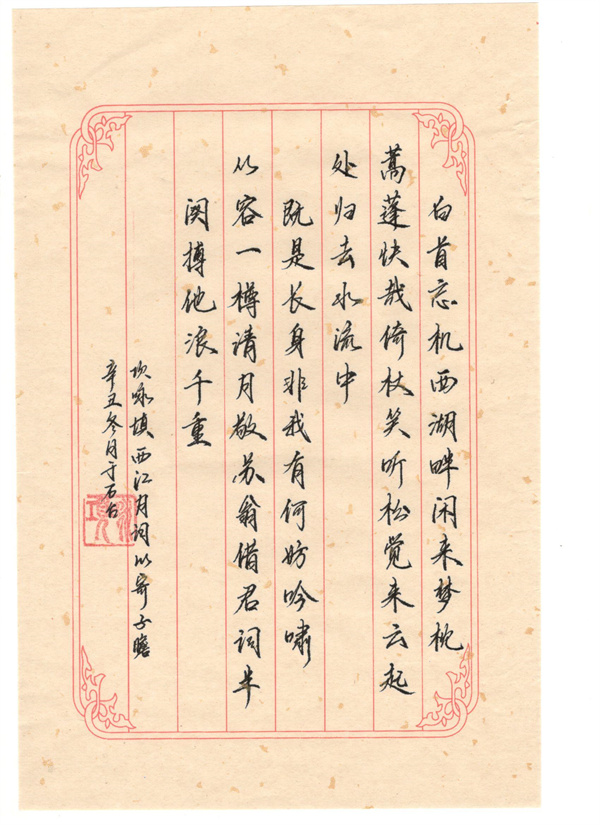 白首忘机西湖畔闲来梦枕
蒿蓬快哉倚杖笑听松觉来云起
处归去水流中
既是长身非我有何妨吟啸
从容一樽请月敬苏翁借君词半
阕搏他浪千重
坎咏填西江月词以寄子瞻
辛丑冬月于石台